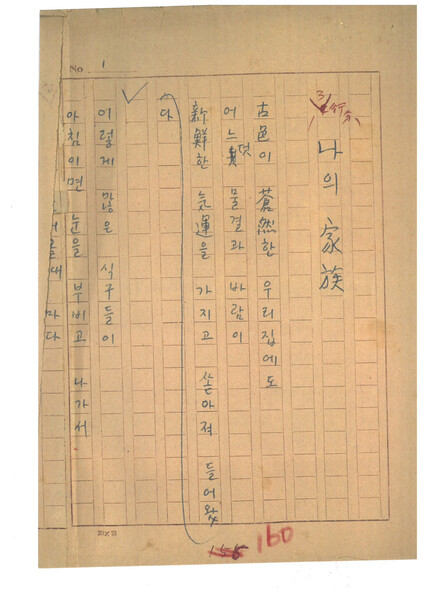 No 1
나의 家族
古色이 蒼然한 우리집에도
어느덧 물결과 바람이
新鮮한 氣運을 가지고 쏟아져 들어왔
다
이렇게 많은 식구들이
아침이면 눈을 부비고 나가서
올때 마다
155 160